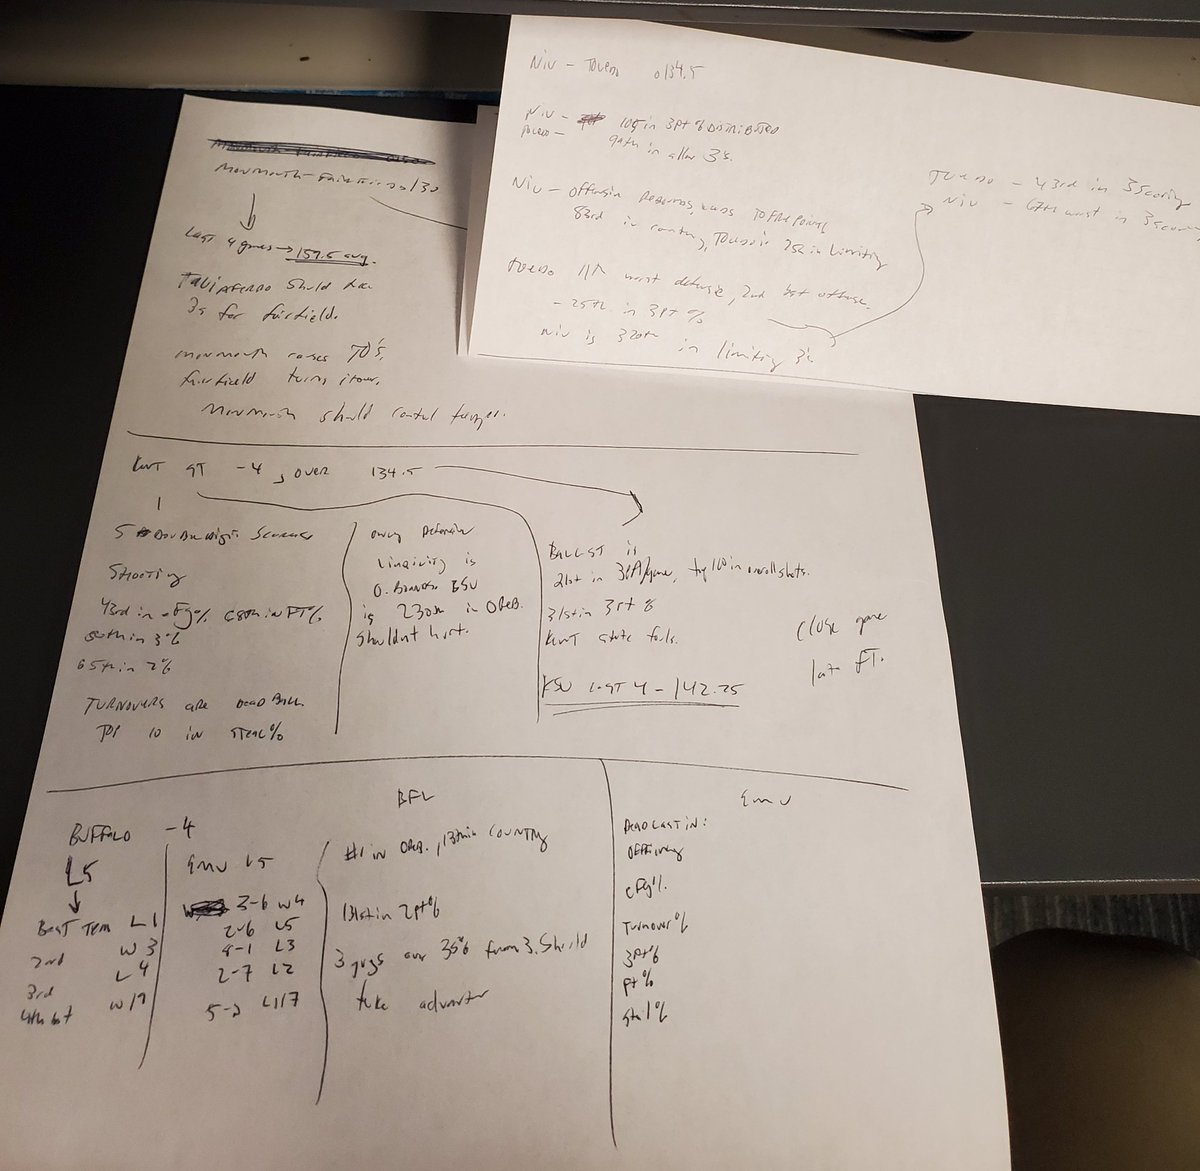 NIU - TOLEDO O134.5
NIU - 105 in 3pt % DISTRIBUTED
TOLEDO - in allow 3's.
NIU - offensive Rebounds,
83rd in country, TOLEDO is 252 in limiting
TOLEDO 11th worst defense, 2nd best offense.
- 25th in 3pt %
NIU is 320th in limiting 3's
TOLEDO - 43rd in 3 scoring
NIU - 67th worst in 3 scoring
MONMOUTH - Fairfield O130
Last 4 games → 157.5 avg.
TALIAFERRO Should have
3s for fairfield.
Monmouth causes TO's,
fairfield turns it over.
Monmouth should control tempo.
KENT ST -4, OVER 134.5
5 DOUBLE Digit Scorers
Shooting
43rd in eFg% 68th in FT%
in 3%
65th in 2%
TURNOVERS are DEAD BALL.
TOP 10 in STEAL%
Only Defensive
is
O. Boards. BSU
is 230th in OREB.
Shouldn't hurt.
BALL ST is
21st in 3PA/game, top 100 in overall shots.
31st in 3pt %
KENT state fouls.
KSU last 4 - 142.25
Close game
late FT.
BUFFALO -4
L5
Best Team L1
2nd W3
3rd L4
4th bst W19
EMU L5
3-6 W4
2-6 L5
8-1 L3
2-7 L2
5-2 L17
BFL
#1 in OREB., 13th in COUNTRY
131st in 2pt%
3 guys over 35% from 3. Should
take advantage
EMU
DEAD LAST IN:
Efficiency
eFg%.
Turnover%
3pt%
Ft%
Steal%